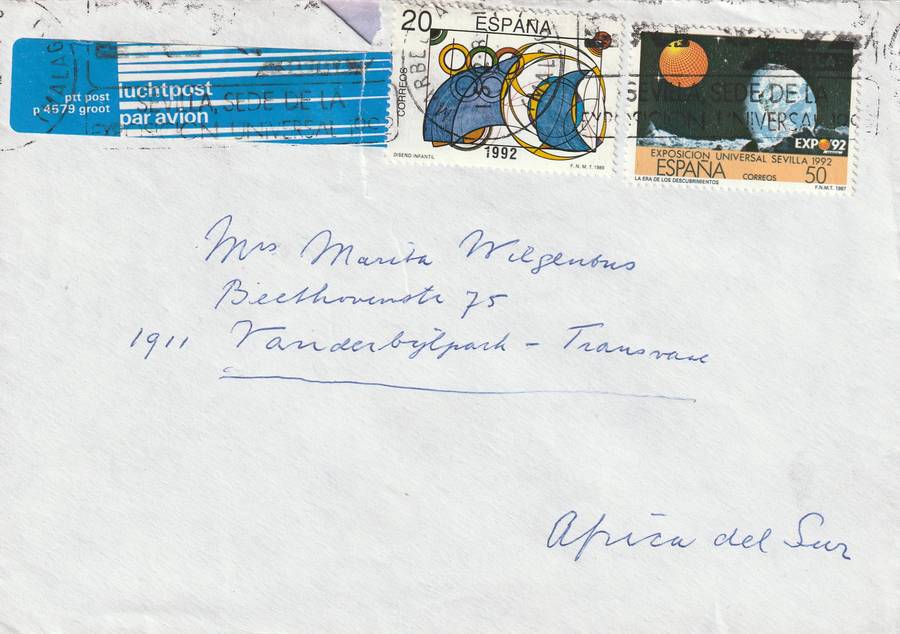 luchtpost
ptt post
p 4579 groot
par avion
MALAG
SEVILLA, SEDE DE LA
UNIVERSAL
20
ESPAÑA
CORREOS
1992
DISEÑO INFANTIL
F.N.M.T.
SEVILLA, SEDE DE LA
EXPOSICION UNIVERSAL
EXPO'92
EXPOSICION UNIVERSAL SEVILLA 1992
ESPAÑA CORREOS 50
LA ERA DE LOS DESCUBRIMIENTOS
F.N.M.T. 1987
Mrs Marita Wilgenbus
Beethovenstr 75
1911 Vanderbijlpark - Transvaal
Africa del Sur